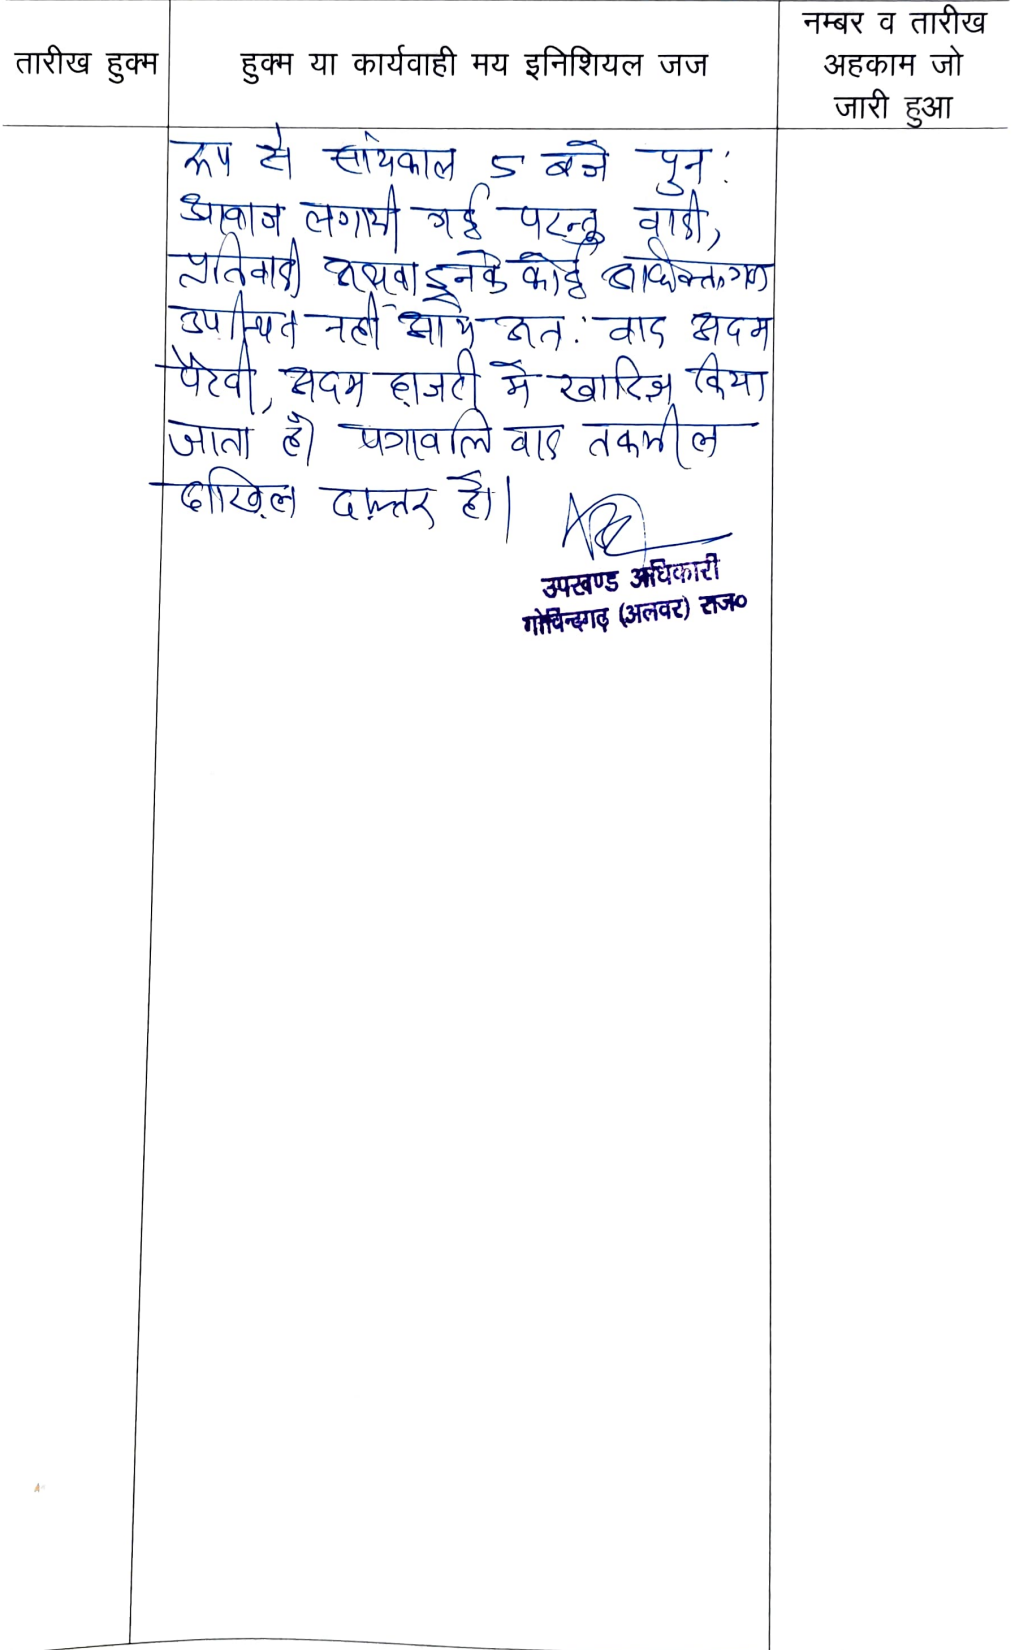 तारीख हुक्म
हुक्म या कार्यवाही मय इनिशियल जज
नम्बर व तारीख
अहकाम जो
जारी हुआ
रूप से सांयकाल 5 बजे पुन:
आवाज लगायी गई परन्तु वादी,
प्रतिवादी अथवा इनके कोई अधिवक्तागण
उपस्थित नहीं आये अत: वाद अदम
पैरवी, अदम हाजरी में खारिज किया
जाता है। पत्रावलि बाद तकमील
दाखिल दफ्तर हो।
उपखण्ड अधिकारी
गोविन्दगढ़ (अलवर) राज०